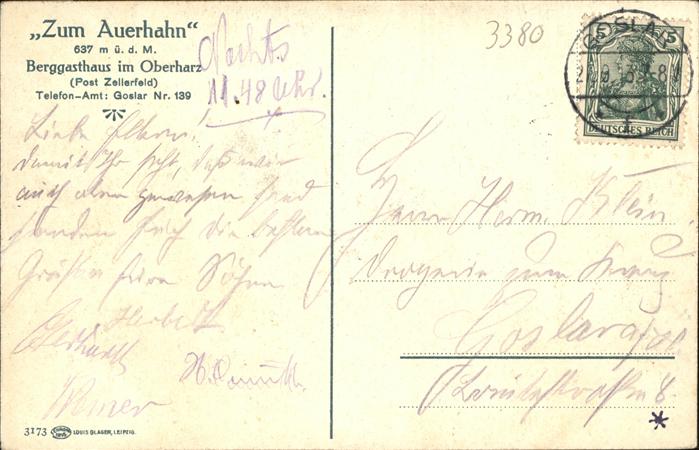 „Zum Auerhahn“
637 m ü. d. M.
Berggasthaus im Oberharz
(Post Zellerfeld)
Telefon-Amt: Goslar Nr. 139
Nachts
11.48 Uhr.
3380
GOSLAR
5 5
DEUTSCHES REICH
Liebe Eltern!
damit Ihr seht, daß wir
auch oben gewesen sind
senden Euch die besten
Grüße Eure Söhne
Herbert
Werner
Herrn Herm. Klein
Drogerie zum Kreuz
Goslar a/H.
3173 LOUIS GLASER, LEIPZIG.